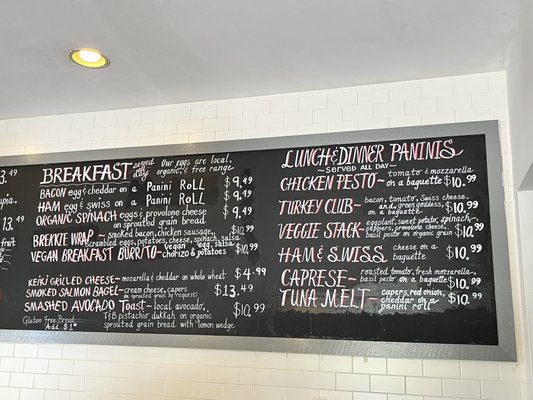 3.49
13.49
fruit
BREAKFAST served all day Our eggs are organic & free range
BACON egg & cheddar on a Panini ROLL $9.49
HAM egg & swiss on a Panini ROLL $9.49
ORGANIC SPINACH eggs & provolone cheese on sprouted grain bread $9.49
BREKKIE WRAP - smoked bacon, chicken sausage, scrambled eggs, potatoes, cheese, spinach, salsa $10.99
VEGAN BREAKFAST BURRITO - vegan egg, salsa, chorizo & potatoes $10.99
KEIKI GRILLED CHEESE - mozzarella & cheddar on whole wheat $4.99
SMOKED SALMON BAGEL - cream cheese, capers $13.49
(on sprouted grain by request)
SMASHED AVOCADO Toast - local avocado, $10.99
T&B pistachio dukkah on organic
sprouted grain bread with lemon wedge
Gluten Free Bread
Add $1
LUNCH & DINNER PANINIS
~SERVED ALL DAY~
CHICKEN PESTO - tomato & mozzarella on a baguette $10.99
TURKEY CLUB - bacon, tomato, Swiss cheese, and green goddess on a baguette $10.99
VEGGIE STACK - eggplant, sweet potato, spinach, peppers, provolone cheese, basil pesto on organic grain $10.99
HAM & SWISS - cheese on a baguette $10.99
CAPRESE - roasted tomato, fresh mozzarella, basil pesto on a baguette $10.99
TUNA MELT - capers, red onion, cheddar on a panini roll $10.99